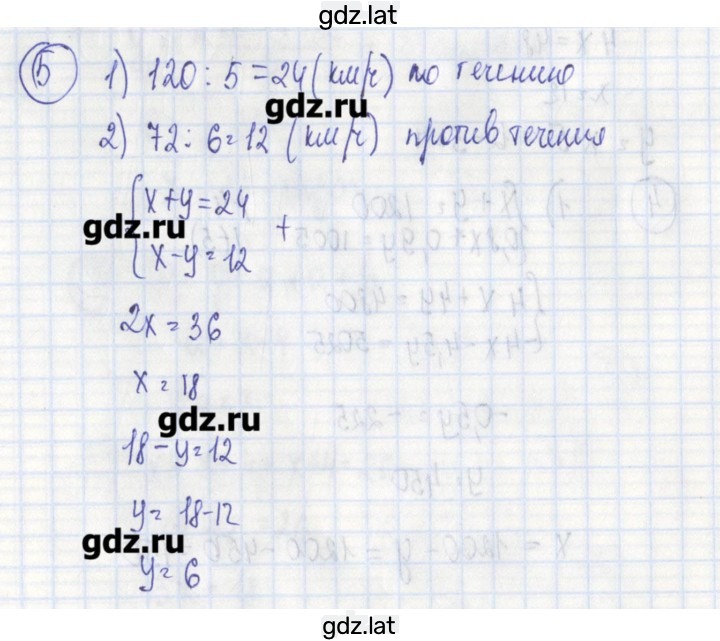 gdz.lat
5 1) 120 : 5 = 24 (км/ч) по течению
gdz.ru
2) 72 : 6 = 12 (км/ч) против течения
{ x + y = 24
gdz.ru +
x - y = 12
2x = 36
x = 18
gdz.ru
18 - y = 12
y = 18 - 12
gdz.ru
y = 6
gdz.lat